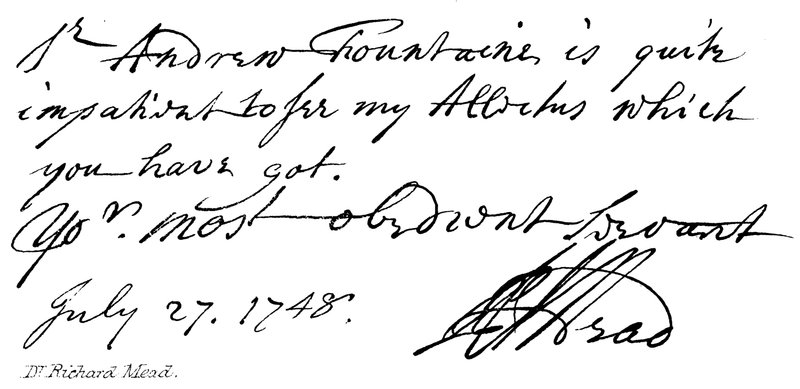 Sr Andrew Fountaine is quite
impatient to see my Allectus which
you have got.
Yor. most obedient Servant
July 27. 1748. RMead
Dr Richard Mead.